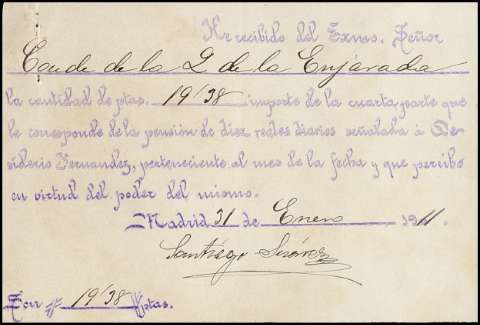 He recibido del Exmo. Señor
Conde de la Q de la Enjarada
la cantidad de ptas. 19/38 importe de la cuarta parte que
le corresponde de la pensión de diez reales diarios señalada á De-
siderio Fernandez, perteneciente al mes de la fecha y que percibo
en virtud del poder del mismo.
Madrid 31 de Enero 1911.
Santiago Suárez
Son # 19/38 # ptas.